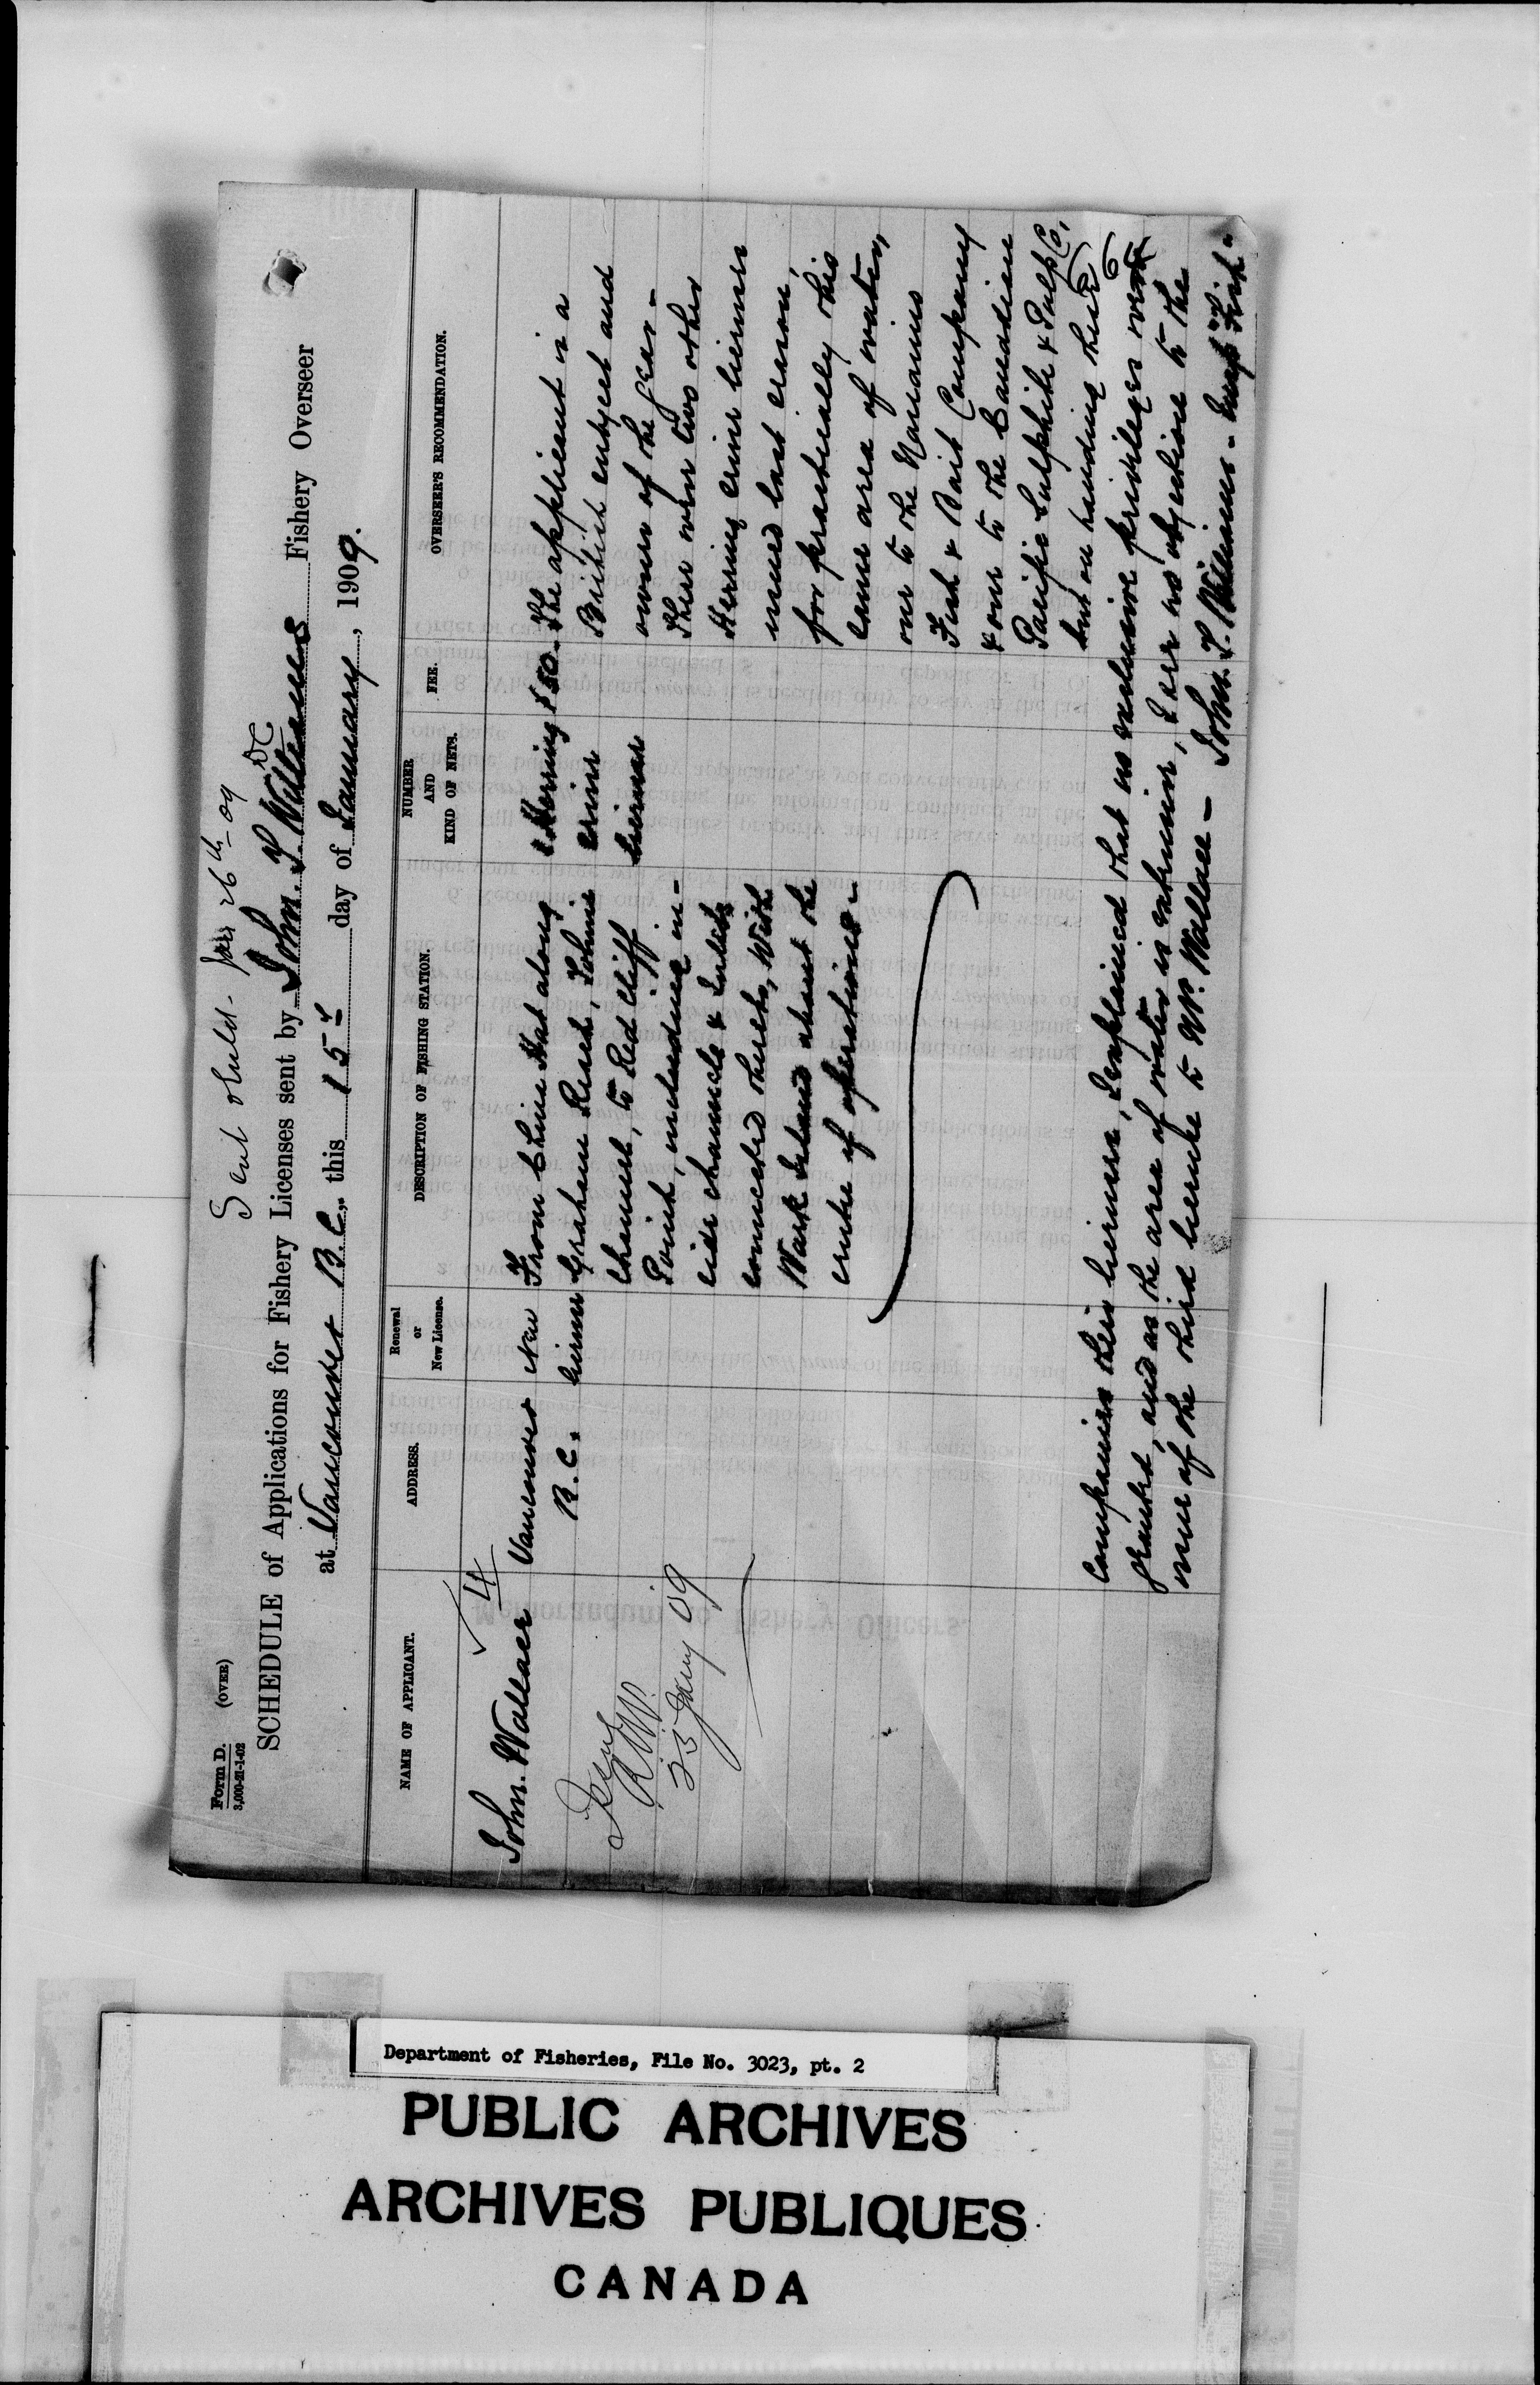 Form D. (OVER)
3,000-21-1-02
Sent
Jan 26th 09
SCHEDULE of Applications for Fishery Licenses sent by John. T. Williams Fishery Overseer
at Vancouver B.C., this 15th day of January, 1909.
NAME OF APPLICANT.
ADDRESS.
Renewal
or
New License.
DESCRIPTION OF FISHING STATION.
NUMBER
AND
KIND OF NETS.
FEE.
OVERSEER'S RECOMMENDATION.
John. Wallace
4
R.N.V.
23 Jany 09
Vancouver
B.C.
New
license
From China Hat along
Graham Reach, Tolmie
Channel, to Red Cliff
Point, including in-
side channels & Inlets
connected thereto, With
Wark Island about the
centre of operations -
Herring
seine
license
$50 -
The applicant is a
British subject and
owner of the gear -
There were two other
Herring seine licenses
issued last season,
for practically this
same area of water,
one to the Nanaimo
Fish & Bait Company
& one to the Canadian
Pacific Sulphite & Pulp Co,
but on handing these
companies their license, I explained that no exclusive privileges were
granted, and as the area of water is extensive, I see no objection to the
issue of the third license to Mr. Wallace -
John. T. Williams -
Department of Fisheries, File No. 3023, pt. 2
PUBLIC ARCHIVES
ARCHIVES PUBLIQUES
CANADA